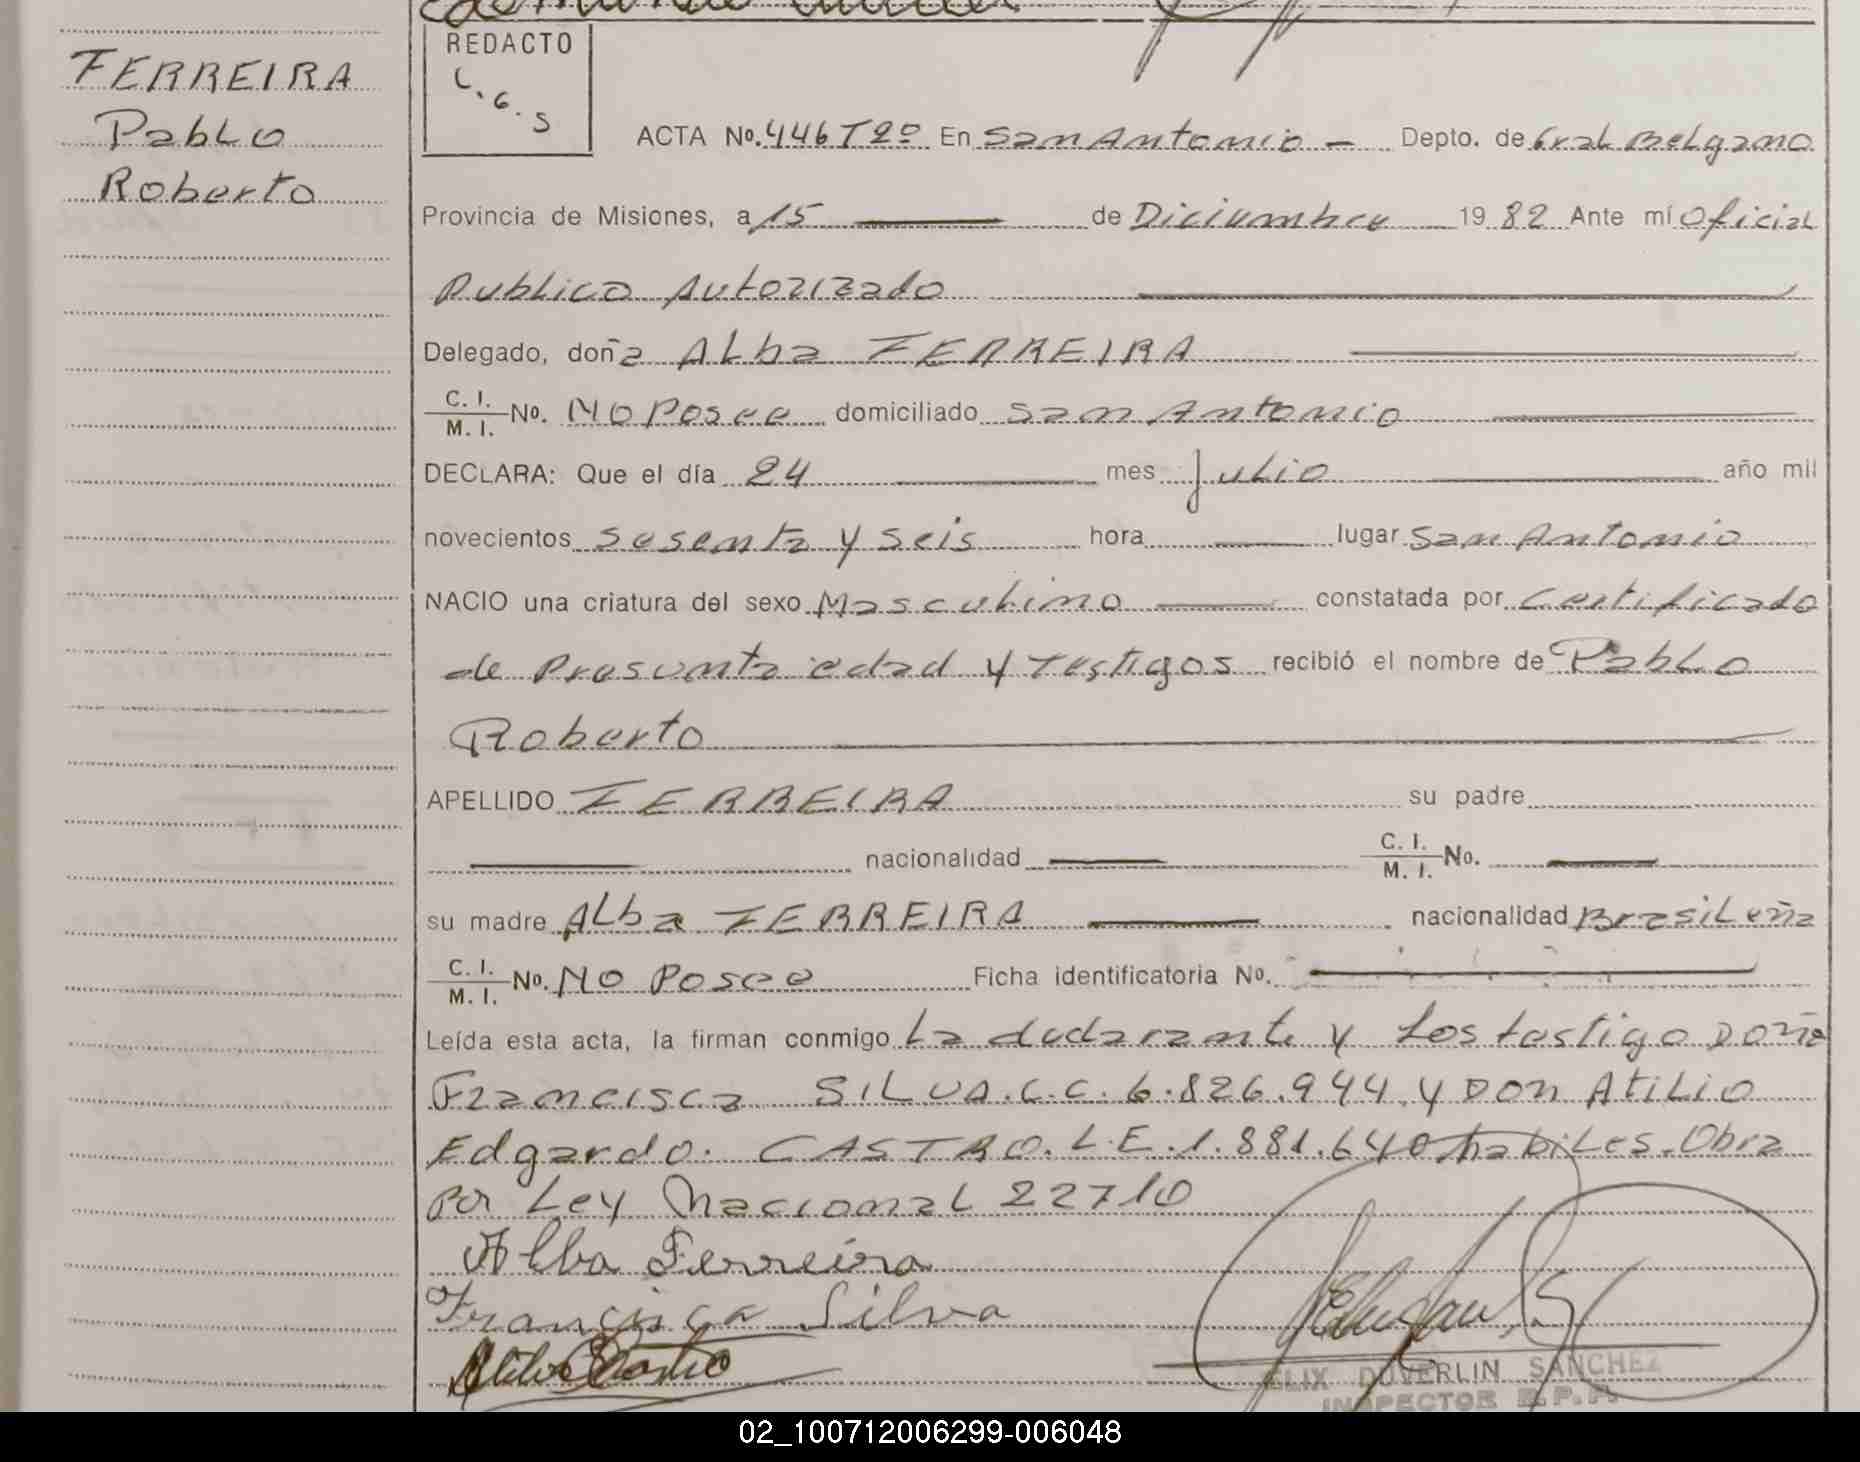 FERREIRA
Pablo
Roberto
REDACTO
L.G.S
ACTA No. 446 Tº 2º En San Antonio — Depto. de Gral Belgrano
Provincia de Misiones, a 15 — de Diciembre 19 82 Ante mí Oficial
Publico Autorizado —
Delegado, doña Alba FERREIRA —
C. I. / M. I. No. No Posee domiciliado San Antonio —
DECLARA: Que el día 24 — mes Julio — año mil
novecientos sesenta y seis hora — lugar San Antonio
NACIO una criatura del sexo Masculino — constatada por Certificado
de Presunta edad y testigos recibió el nombre de Pablo
Roberto —
APELLIDO FERREIRA su padre
— nacionalidad — C. I. / M. I. No. —
su madre Alba FERREIRA — nacionalidad Brasileña
C. I. / M. I. No. No Posee Ficha identificatoria No. —
Leída esta acta, la firman conmigo La declarante y Los testigo Doña
Francisca SILVA. C.C. 6.826.944. y Don Atilio
Edgardo. CASTRO. L.E. 1.881.640 habiles. Obra
por Ley Nacional 22710
Alba Ferreira
Francisca Silva
FELIX DUVERLIN SANCHEZ
INSPECTOR R.P.P.
02_100712006299-006048